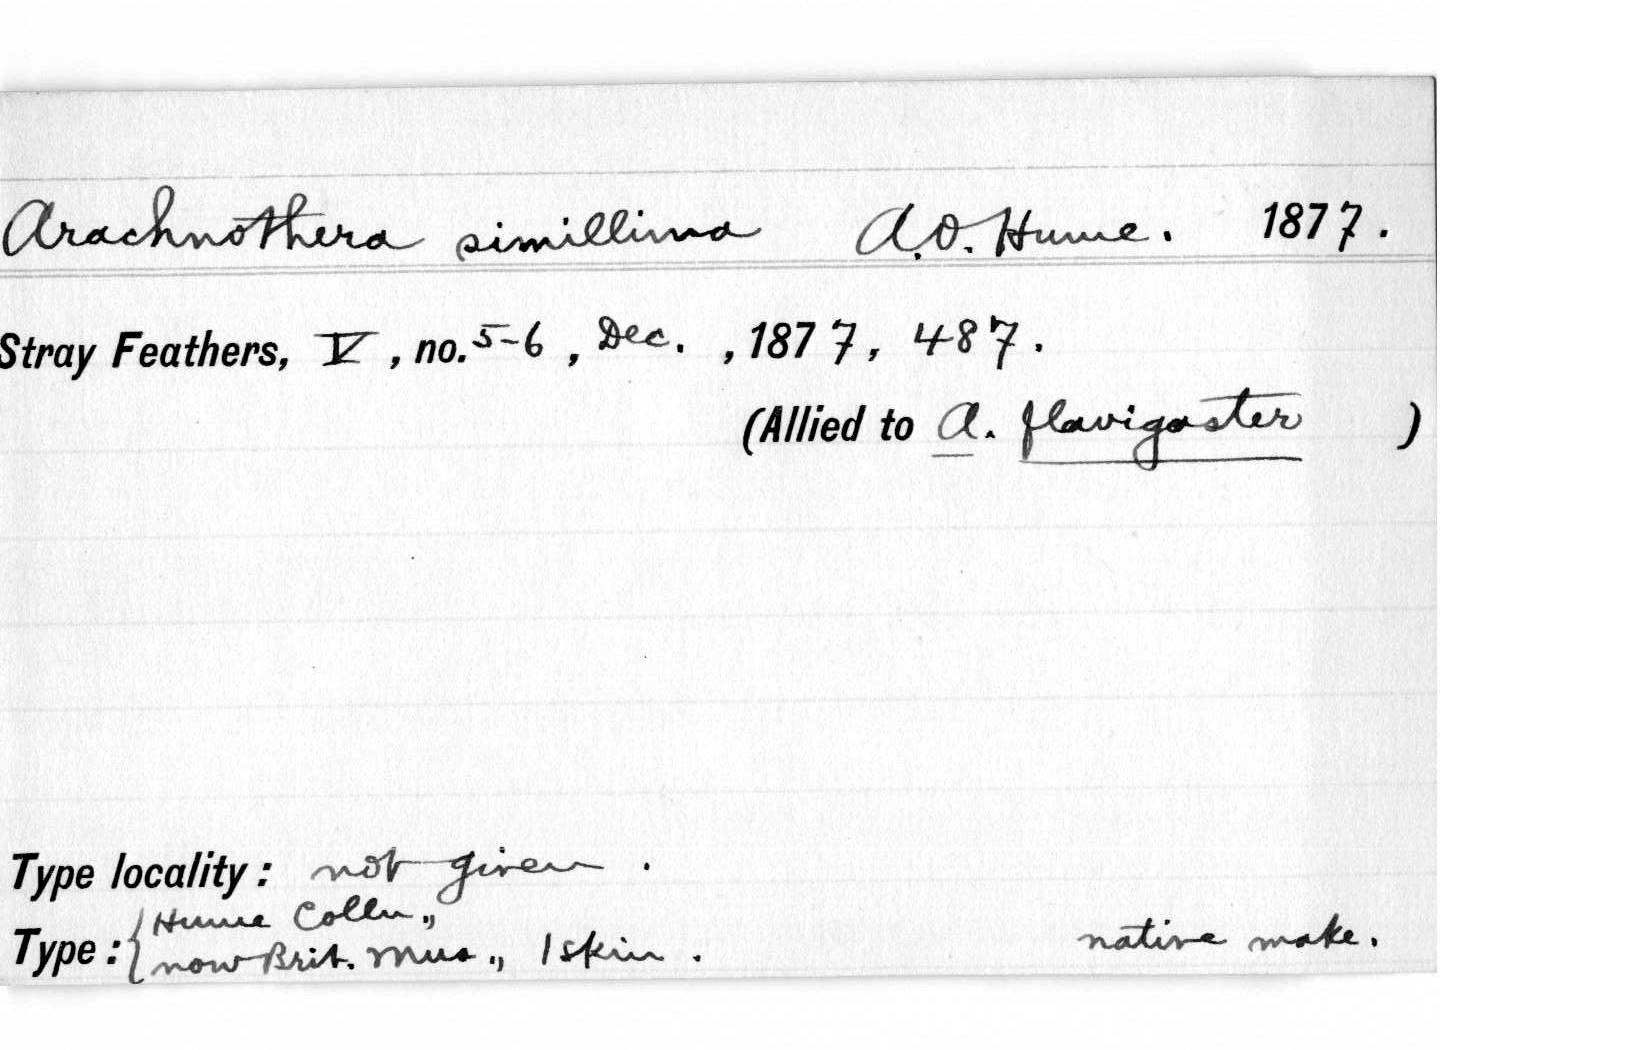 Arachnothera simillima A.O. Hume. 1877.
Stray Feathers, V, no. 5-6, Dec., 1877, 487.
(Allied to A. flavigaster)
Type locality: not given.
Hume Colln.,
Type: { now Brit. Mus., 1 skin. native make.